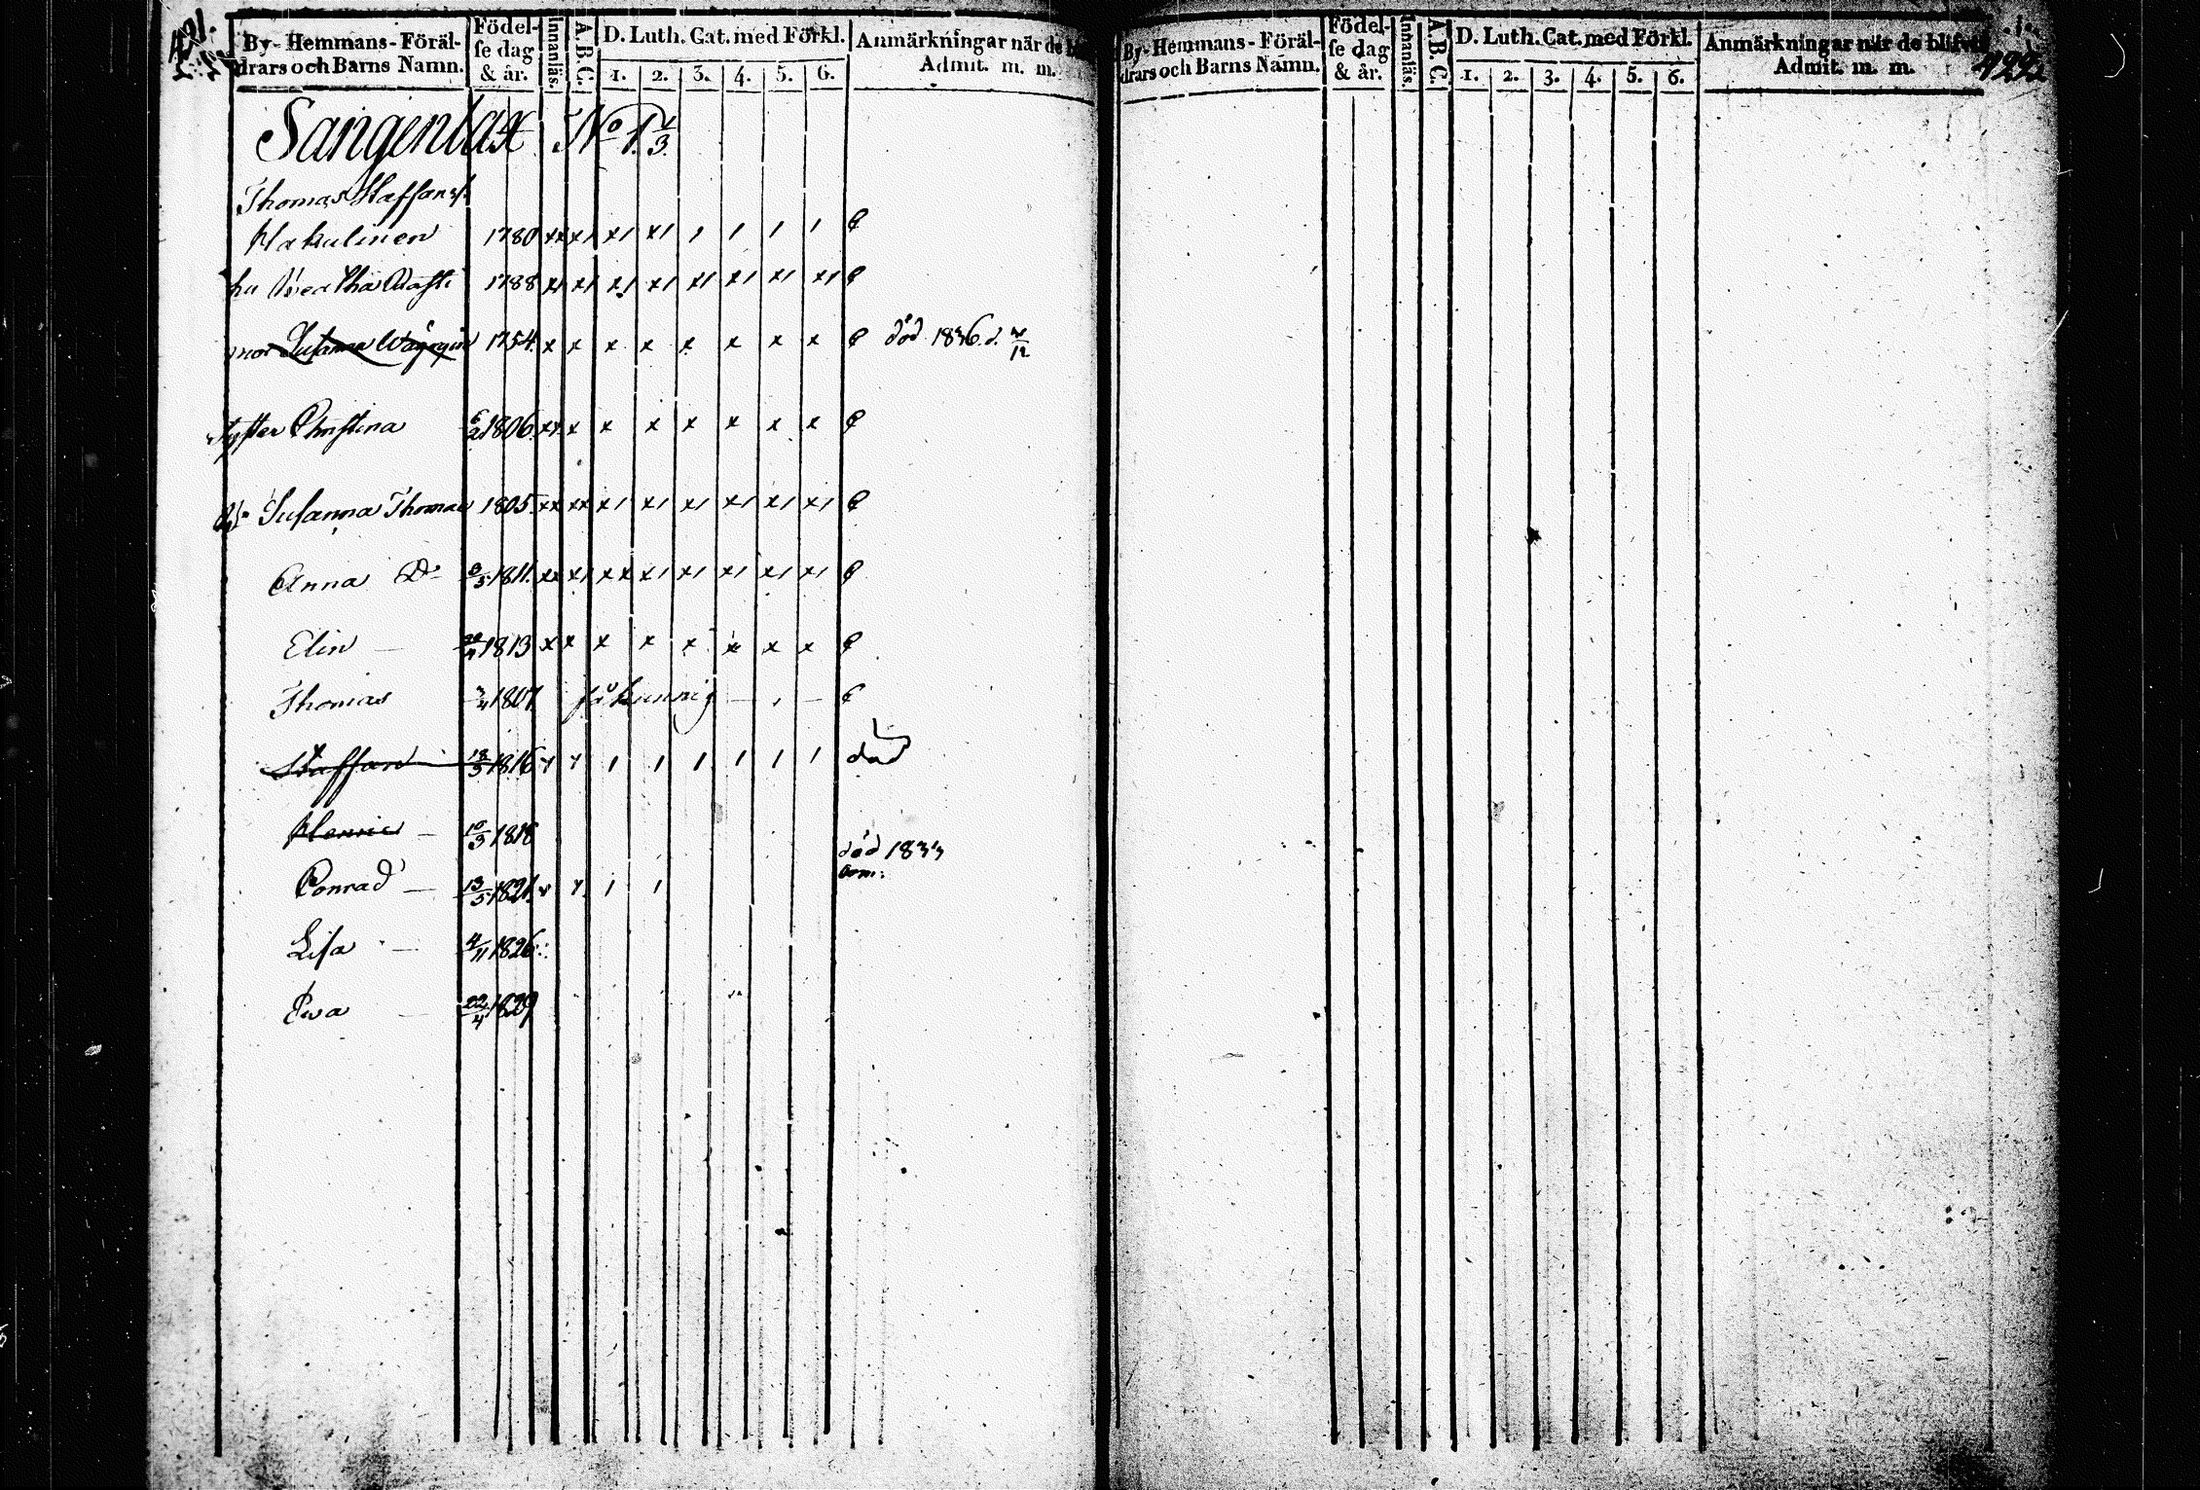 421.
By- Hemmans- Föräl-
drars och Barns Namn.
Födel-
se dag
& år.
Innanläs.
A. B. C.
D. Luth. Cat. med Förkl.
1. 2. 3. 4. 5. 6.
Anmärkningar när de
Admit. m. m.
Sangenlax No 1. 1/3.
Thomas Staffans.
Hakulinen 1780 xx x1 x1 x1 1 1 1 1
hu 1788 x1 x1 x1 x1 x1 x1 x1 x1
mor Susanna 1754. x x x x x x x x död 1836. d.
Syster Christina 1806. xx x x x x x x x
Susanna Thomae 1805. xx xx x1 x1 x1 x1 x1 x1
Anna Do 1811. xx x1 xx x1 x1 x1 x1 x1
Elin — 1813 x x x x x x x x
Thomas 1807 få kunnig — —
Staffan 18/3 1816 1 1 1 1 1 1 död
10/3 1818
död 1833
Conrad — 13/5 1821. 1 1
Lisa — 4/11 1826
Ewa — 22/4 1829
By- Hemmans- Föräl-
drars och Barns Namn.
Födel-
se dag
& år.
Innanläs.
A. B. C.
D. Luth. Cat. med Förkl.
1. 2. 3. 4. 5. 6.
Anmärkningar när de blifvit
Admit. m. m.
422.